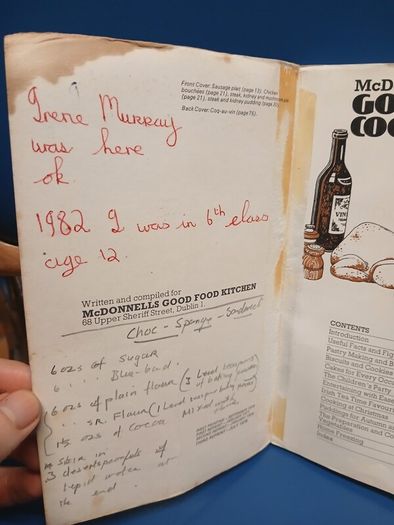 Front Cover: Sausage plait (page 13). Chicken
bouchées (page 21), steak, kidney and mushroom pie
(page 21), steak and kidney pudding (page 30).
Back Cover: Coq-au-vin (page 76).
Irene Murray
was here
ok
1982 I was in 6th class
age 12.
Written and compiled for
McDONNELLS GOOD FOOD KITCHEN
68 Upper Sheriff Street, Dublin 1.
Choc - Sponge - Sandwich
6 ozs of sugar
6 " " Blue-band.
6 ozs of plain flour (3 level teaspoons
of baking powder)
" " S.R. Flour (1 level teaspoon baking powder)
1½ ozs of cocoa
Mixed with
* Stir in
3 dessertspoonfuls of
tepid water at
the end.
McD
GO
COO
VIN
CONTENTS
Introduction
Useful Facts and Fig
Pastry Making and B
Biscuits and Cookies
Cakes for Every Occa
The Children's Party
Entertaining with Ease
Irish Tea Time Favour
Cooking at Christmas
Puddings for Autumn a
The Preparation and Co
Home Freezing
Index